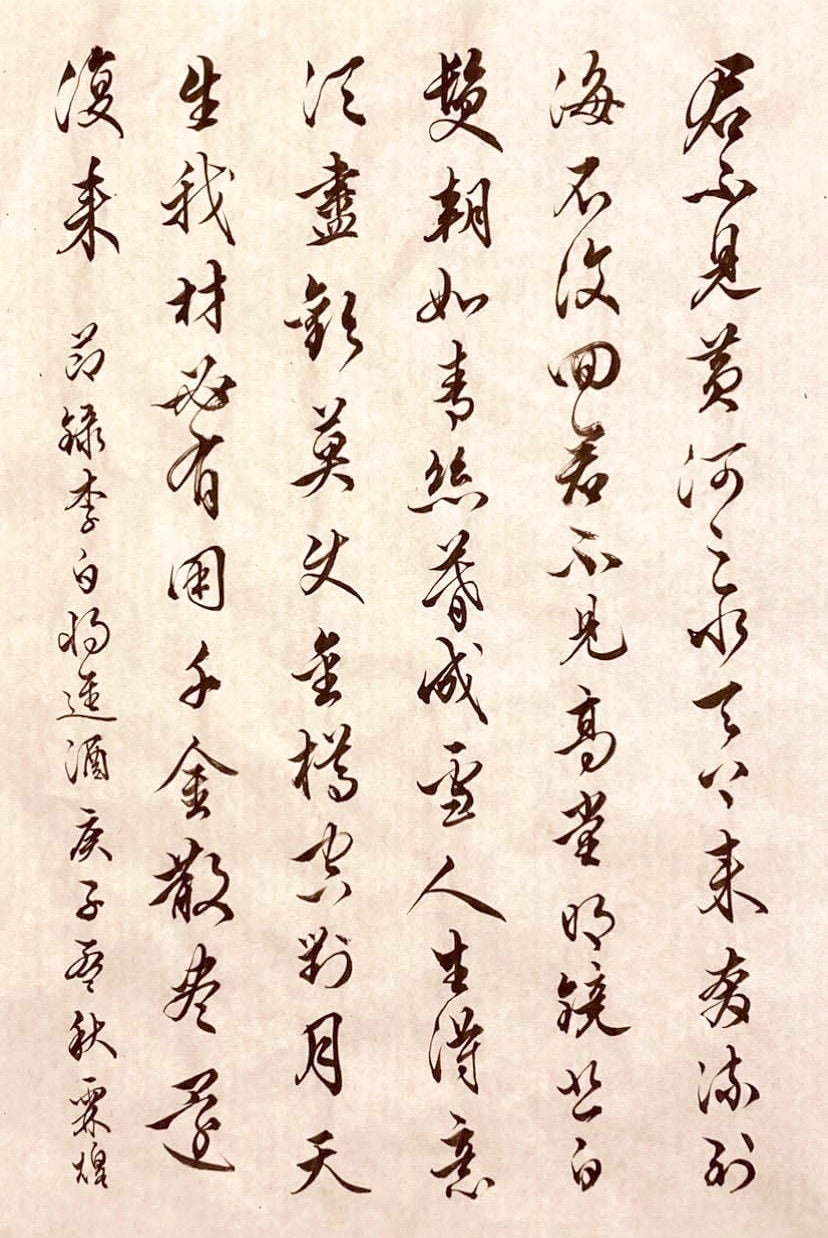 君不見黃河之水天上來奔流到
海不復回君不見高堂明鏡悲白
髮朝如青絲暮成雪人生得意
須盡歡莫使金樽空對月天
生我材必有用千金散盡還
復來 節錄李白將進酒庚子孟秋霖煌